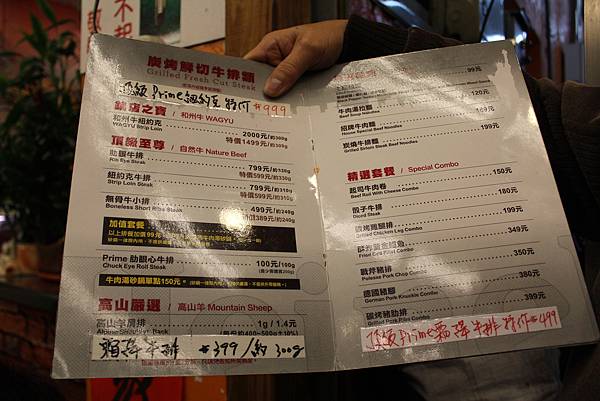 炭烤鮮切牛排類
Grilled Fresh Cut Steak
頂級Prime紐約克 特价 $999
鎮店之寶 / 和州牛 WAGYU
和州牛紐約克 2000元/約300g
WAGYU Strip Loin 特價1499元/約300g
頂級至尊 / 自然牛 Nature Beef
肋眼牛排 799元/約330g
Rib Eye Steak 特價599元/約330g
紐約克牛排 799元/約310g
Strip Loin Steak 特價599元/約310g
無骨牛小排 499元/約240g
Boneless Short Ribs Steak 特價389元/約240g
加值套餐
Prime 肋眼心牛排 100元/100g
Chuck Eye Roll Steak
牛肉湯砂鍋單點150元。
高山嚴選 / 高山羊 Mountain Sheep
高山羊肩排 1g / 1.4元
賴尿牛排 $399/約300g
99元
120元
牛肉湯拉麵 169元
Beef Soup Noodles
招牌牛肉麵 169元
House Special Beef Noodles
炭燒牛排麵 199元
Grilled Sirloin Steak Beef Noodles
精選套餐 / Special Combo
起司牛肉卷 150元
Beef Roll With Cheese Combo
骰子牛排 180元
Diced Steak
碳烤雞腿排 199元
Grilled Chicken Leg Combo
酥炸黃金鱈魚 349元
Fried Cod Fillet Combo
戰斧豬排 350元
Pulesse Pork Chop Combo
德國豬腳 380元
German Pork Knuckle Combo
碳烤豬肋排 399元
Grilled Pork Ribs Combo
頂級Prime霜降牛排 特价$499